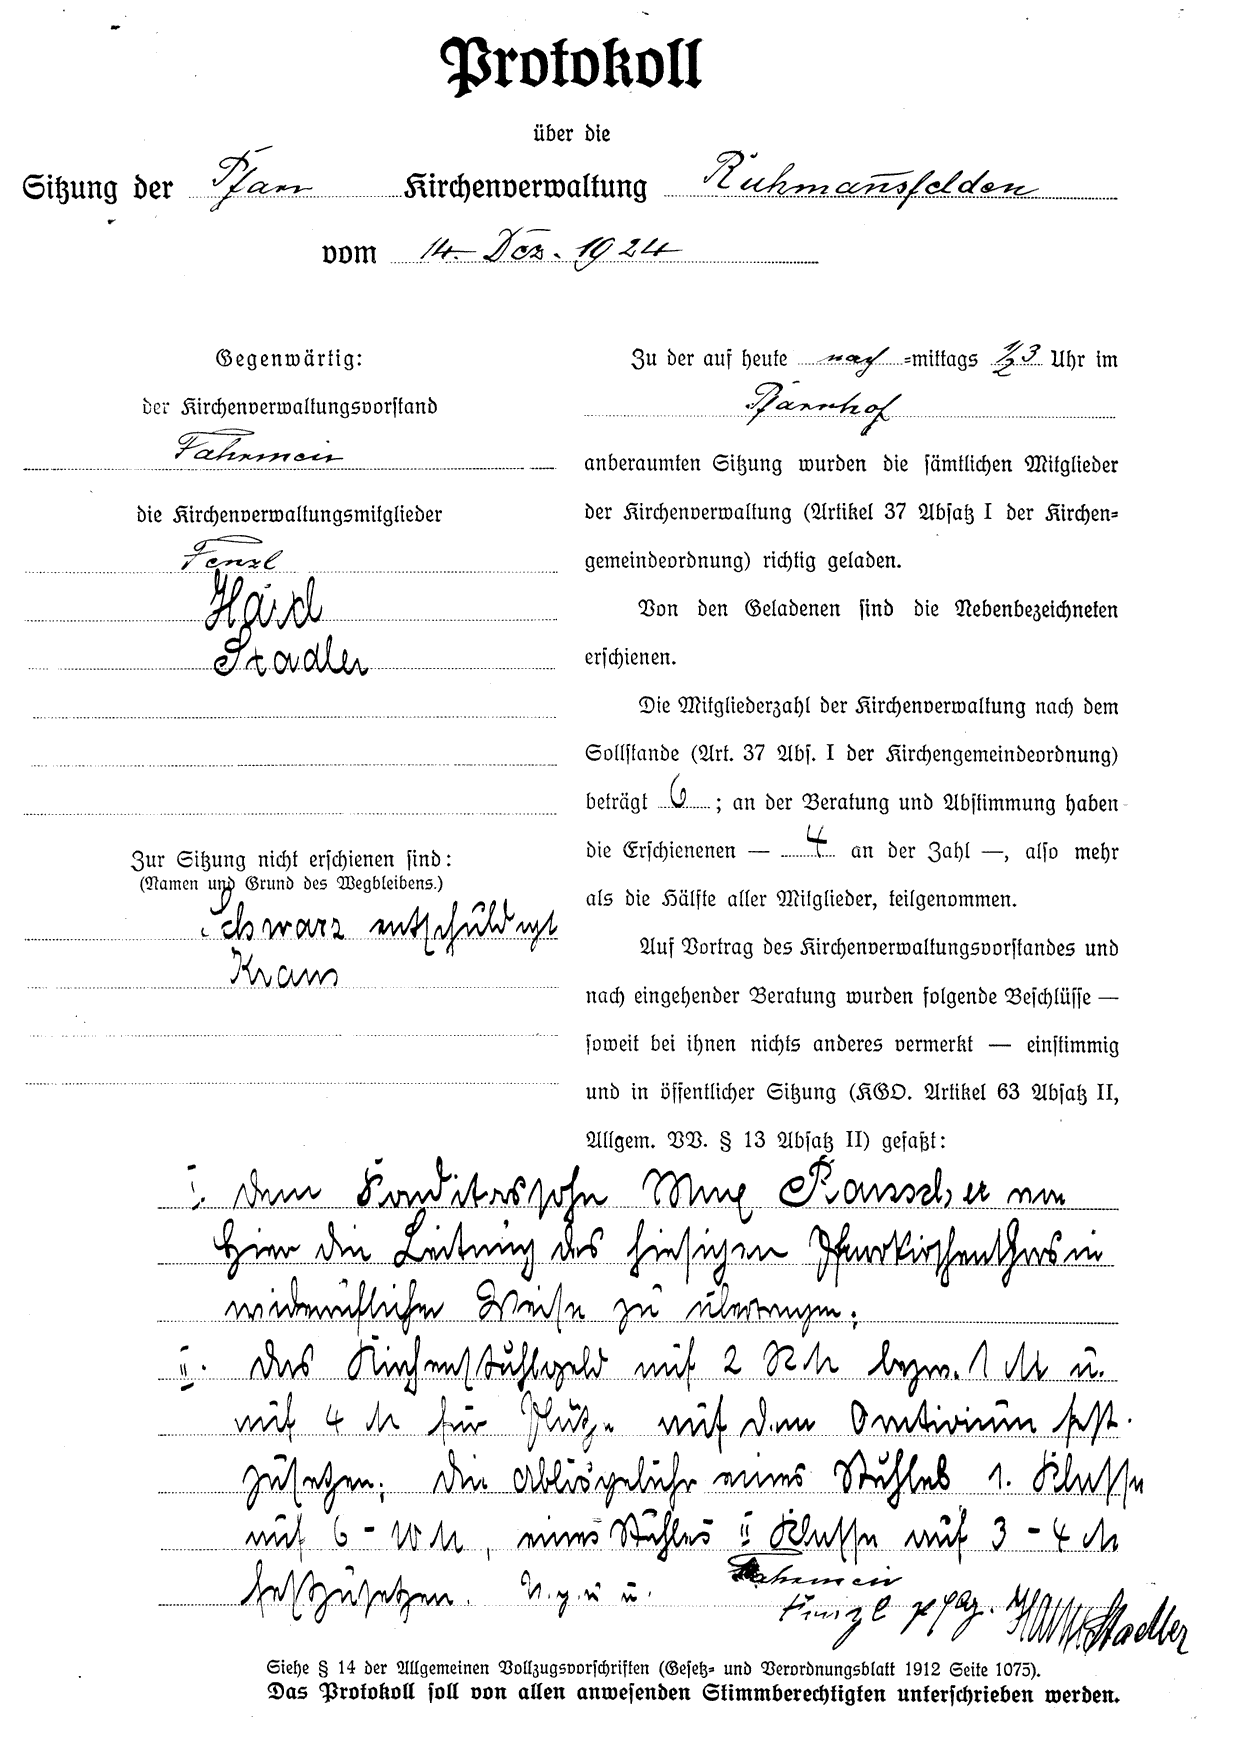 Protokoll
über die
Sitzung der Pfarr Kirchenverwaltung Ruhmannsfelden
vom 14. Dez. 1924
Gegenwärtig:
der Kirchenverwaltungsvorstand
Fahrmeir
die Kirchenverwaltungsmitglieder
Fenzl
Härtl
Stadler
Zur Sitzung nicht erschienen sind:
(Namen und Grund des Wegbleibens.)
Schwarz entschuldigt
Kraus
Zu der auf heute nach=mittags 1/2 3 Uhr im
Pfarrhof
anberaumten Sitzung wurden die sämtlichen Mitglieder
der Kirchenverwaltung (Artikel 37 Absatz I der Kirchen=
gemeindeordnung) richtig geladen.
Von den Geladenen sind die Nebenbezeichneten
erschienen.
Die Mitgliederzahl der Kirchenverwaltung nach dem
Sollstande (Art. 37 Abs. I der Kirchengemeindeordnung)
beträgt 6; an der Beratung und Abstimmung haben
die Erschienenen — 4 an der Zahl —, also mehr
als die Hälfte aller Mitglieder, teilgenommen.
Auf Vortrag des Kirchenverwaltungsvorstandes und
nach eingehender Beratung wurden folgende Beschlüsse —
soweit bei ihnen nichts anderes vermerkt — einstimmig
und in öffentlicher Sitzung (KGO. Artikel 63 Absatz II,
Allgem. VV. § 13 Absatz II) gefaßt:
I. dem Konditorssohn Max Rauscher von
hier die Leitung des hiesigen Pfarrkirchenchors in
widerruflicher Weise zu übertragen;
II. das Kirchenstuhlgeld auf 2 RM bezw. 1 M u.
auf 4 M für Plätze auf dem Oratorium fest
zusetzen; die Ablösgebühr eines Stuhles 1. Klasse
auf 6 - 10 M, eines Stuhles II Klasse auf 3 - 4 M
festzusetzen. V. g. u u.
Fahrmeir
Fenzl Stadler
Siehe § 14 der Allgemeinen Vollzugsvorschriften (Gesetz= und Verordnungsblatt 1912 Seite 1075).
Das Protokoll soll von allen anwesenden Stimmberechtigten unterschrieben werden.